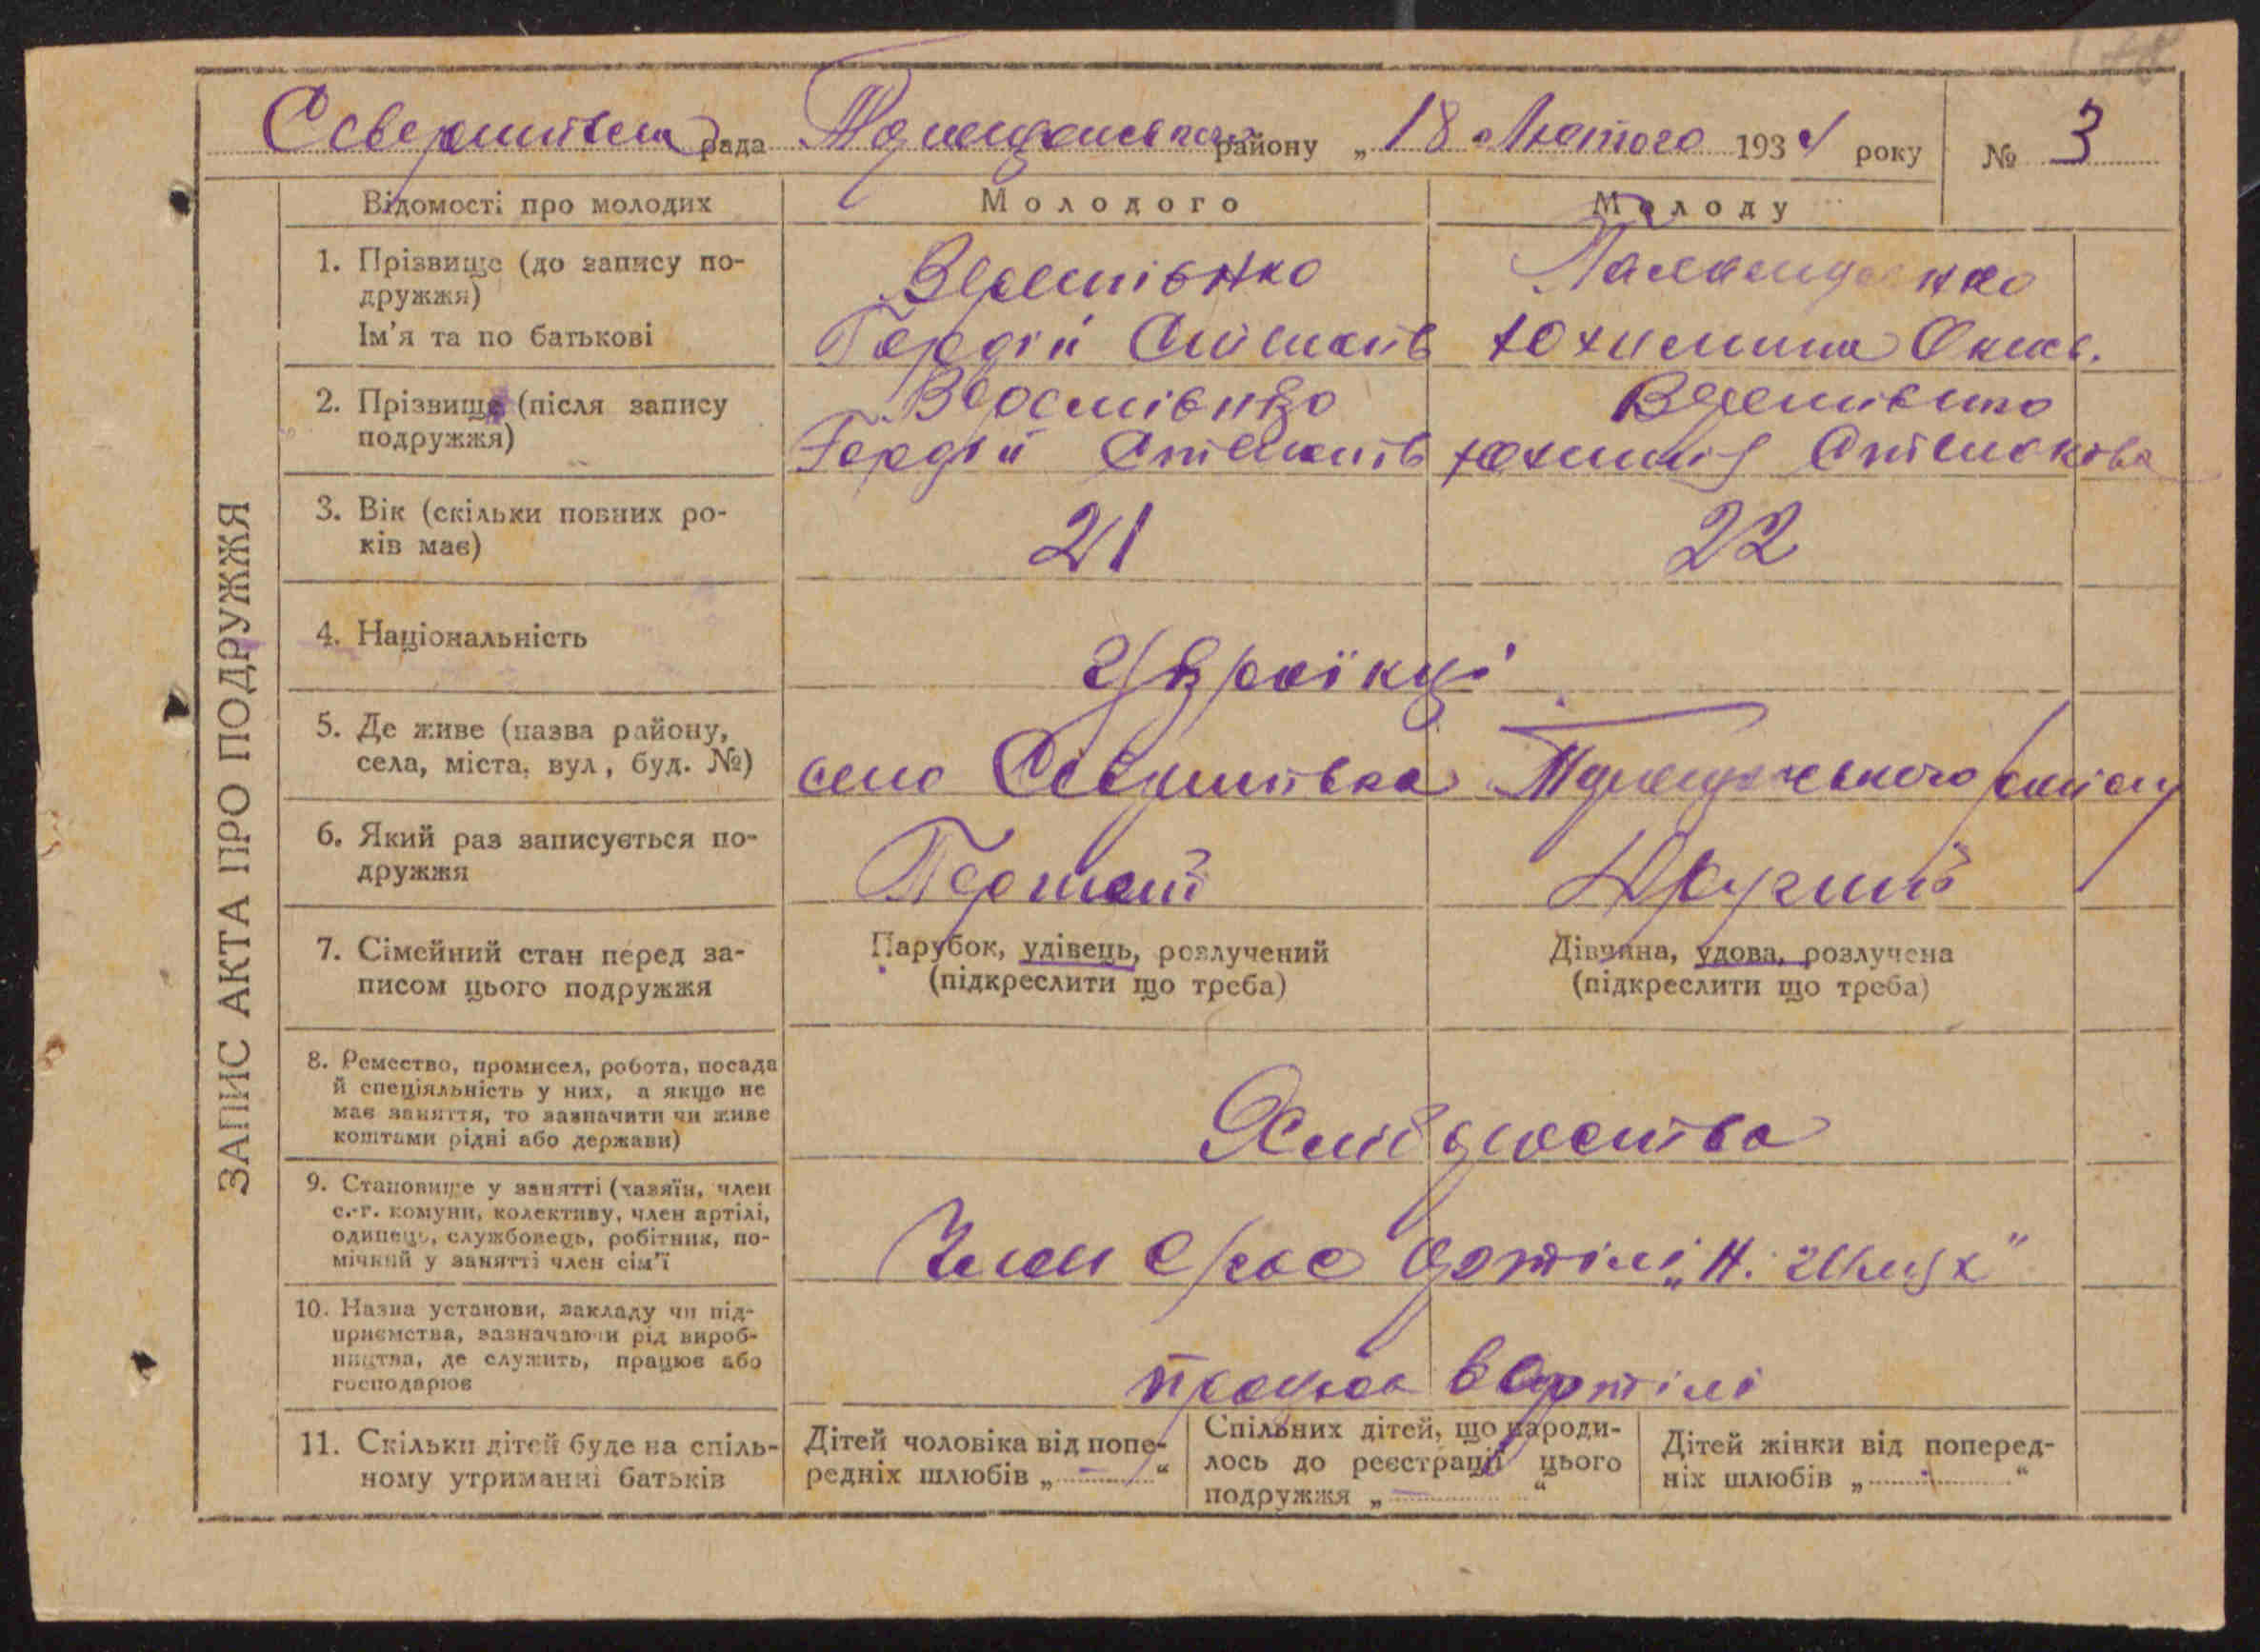 рада району „ 18 Лютого 1934 року № 3
Відомості про молодих Молодого Молоду
1. Прізвище (до запису по-
дружжя)
Ім'я та по батькові
Гордій Юхимина
2. Прізвище (після запису
подружжя)
Гордій
3. Вік (скільки повних ро-
ків має)
21 22
4. Національність
Українці
5. Де живе (назва району,
села, міста, вул, буд. №)
село району
6. Який раз записується по-
дружжя
Перший Другий
7. Сімейний стан перед за-
писом цього подружжя
Парубок, удівець, розлучений
(підкреслити що треба)
Дівчина, удова, розлучена
(підкреслити що треба)
8. Ремество, промисел, робота, посада
й спеціяльність у них, а якщо не
має заняття, то зазначити чи живе
коштами рідні або держави)
Хліборобства
9. Становище у занятті (хазяїн, член
с.-г. комуни, колективу, член артілі,
одинець, службовець, робітник, по-
мічний у занятті член сім'ї
Член артілі „Н. Шлях"
10. Назва установи, закладу чи під-
приємства, зазначаючи рід вироб-
ництва, де служить, працює або
господарює
працює в Артілі
11. Скільки дітей буде на спіль-
ному утриманні батьків
Дітей чоловіка від попе-
редніх шлюбів „ — “
Спільних дітей, що народи-
лось до реєстрації цього
подружжя „ — “
Дітей жінки від поперед-
ніх шлюбів „ “
ЗАПИС АКТА ПРО ПОДРУЖЖЯ